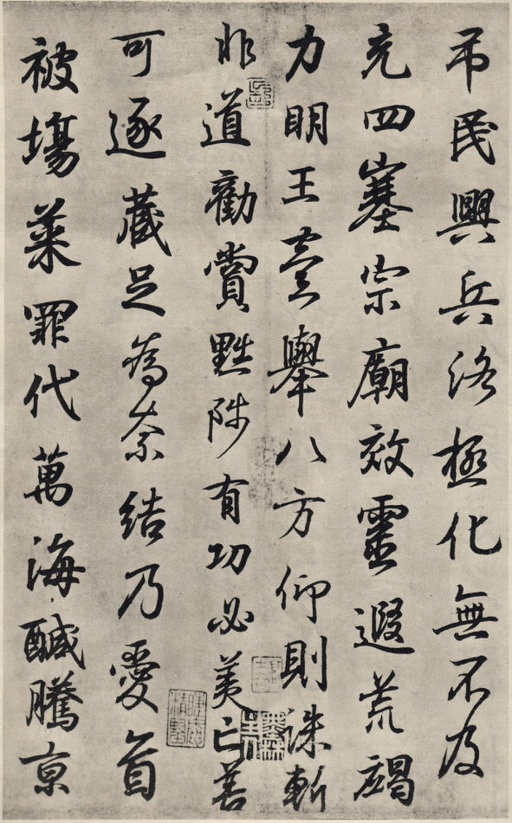 弔民興兵洛極化無不及
充四塞宗廟效靈遐荒謁
力明王臺舉八方仰則誅斬
非道勸賞黜陟有功必美亡善
可逐藏足為奈結乃愛首
被場菜罪代萬海鹹騰京